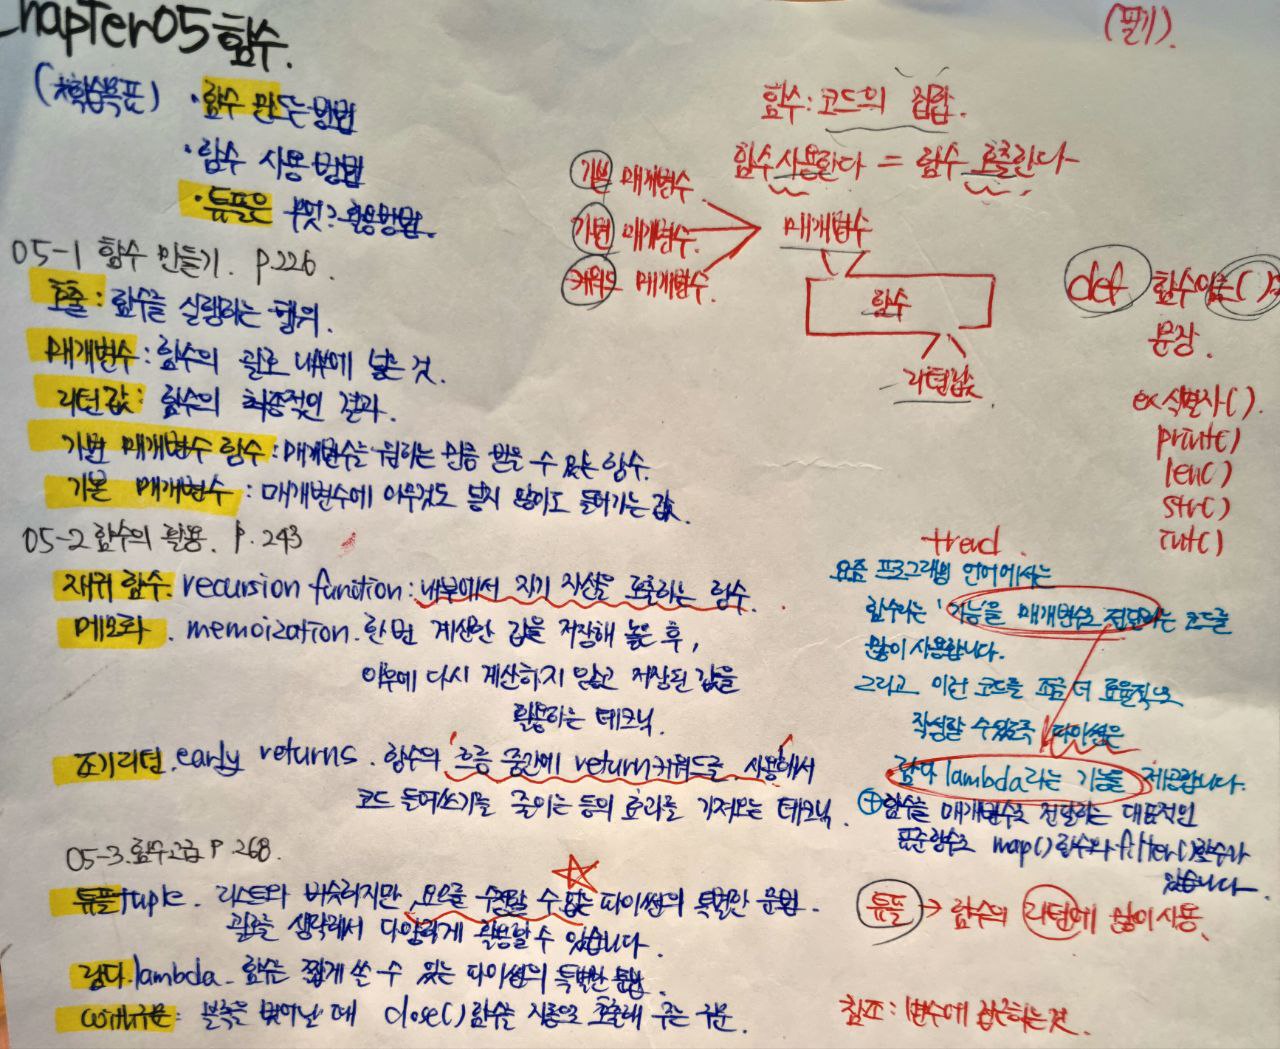 Chapter05 함수.
(필기).
(*학습목표) ·함수 만드는 방법
·함수 사용 방법
·튜플은 무엇? 활용방법.
함수: 코드의 집합.
함수 사용한다 = 함수 호출한다
기본 매개변수
가변 매개변수.
키워드 매개변수.
매개변수
함수
리턴값
def 함수이름():
문장.
ex 식별자().
print()
len()
str()
int()
05-1 함수 만들기. p.226.
호출: 함수를 실행하는 행위.
매개변수: 함수의 괄호 내부에 넣는 것.
리턴값: 함수의 최종적인 결과.
가변 매개변수 함수: 매개변수를 원하는 만큼 받을 수 있는 함수.
기본 매개변수: 매개변수에 아무것도 넣지 않아도 들어가는 값.
05-2 함수의 활용. P.243
재귀 함수. recursion function: 내부에서 자기 자신을 호출하는 함수.
메모화. memoization. 한 번 계산한 값을 저장해 놓은 후,
이후에 다시 계산하지 않고 저장된 값을
활용하는 테크닉.
조기리턴. early returns. 함수의 흐름 중간에 return키워드를 사용해서
코드 들여쓰기를 줄이는 등의 효과를 가져오는 테크닉.
trend.
요즘 프로그래밍 언어에서는
함수라는 '기능'을 매개변수로 전달하는 코드를
많이 사용합니다.
그리고 이런 코드를 조금 더 효율적으로
작성할 수 있도록 파이썬은
람다 lambda라는 기능을 제공합니다.
⊕함수를 매개변수로 전달하는 대표적인
표준함수로 map()함수와 filter()함수가
있습니다.
05-3. 함수고급 P.268.
튜플tuple. 리스트와 비슷하지만, 요소를 수정할 수 없는 파이썬의 특별한 문법.
괄호를 생략해서 다양하게 활용할 수 있습니다.
람다.lambda. 함수를 짧게 쓸 수 있는 파이썬의 특별한 문법.
with구문: 블록을 벗어날 때 close()함수를 자동으로 호출해 주는 구문.
튜플 → 함수의 리턴에 많이 사용.
참조: 변수에 접근하는 것.